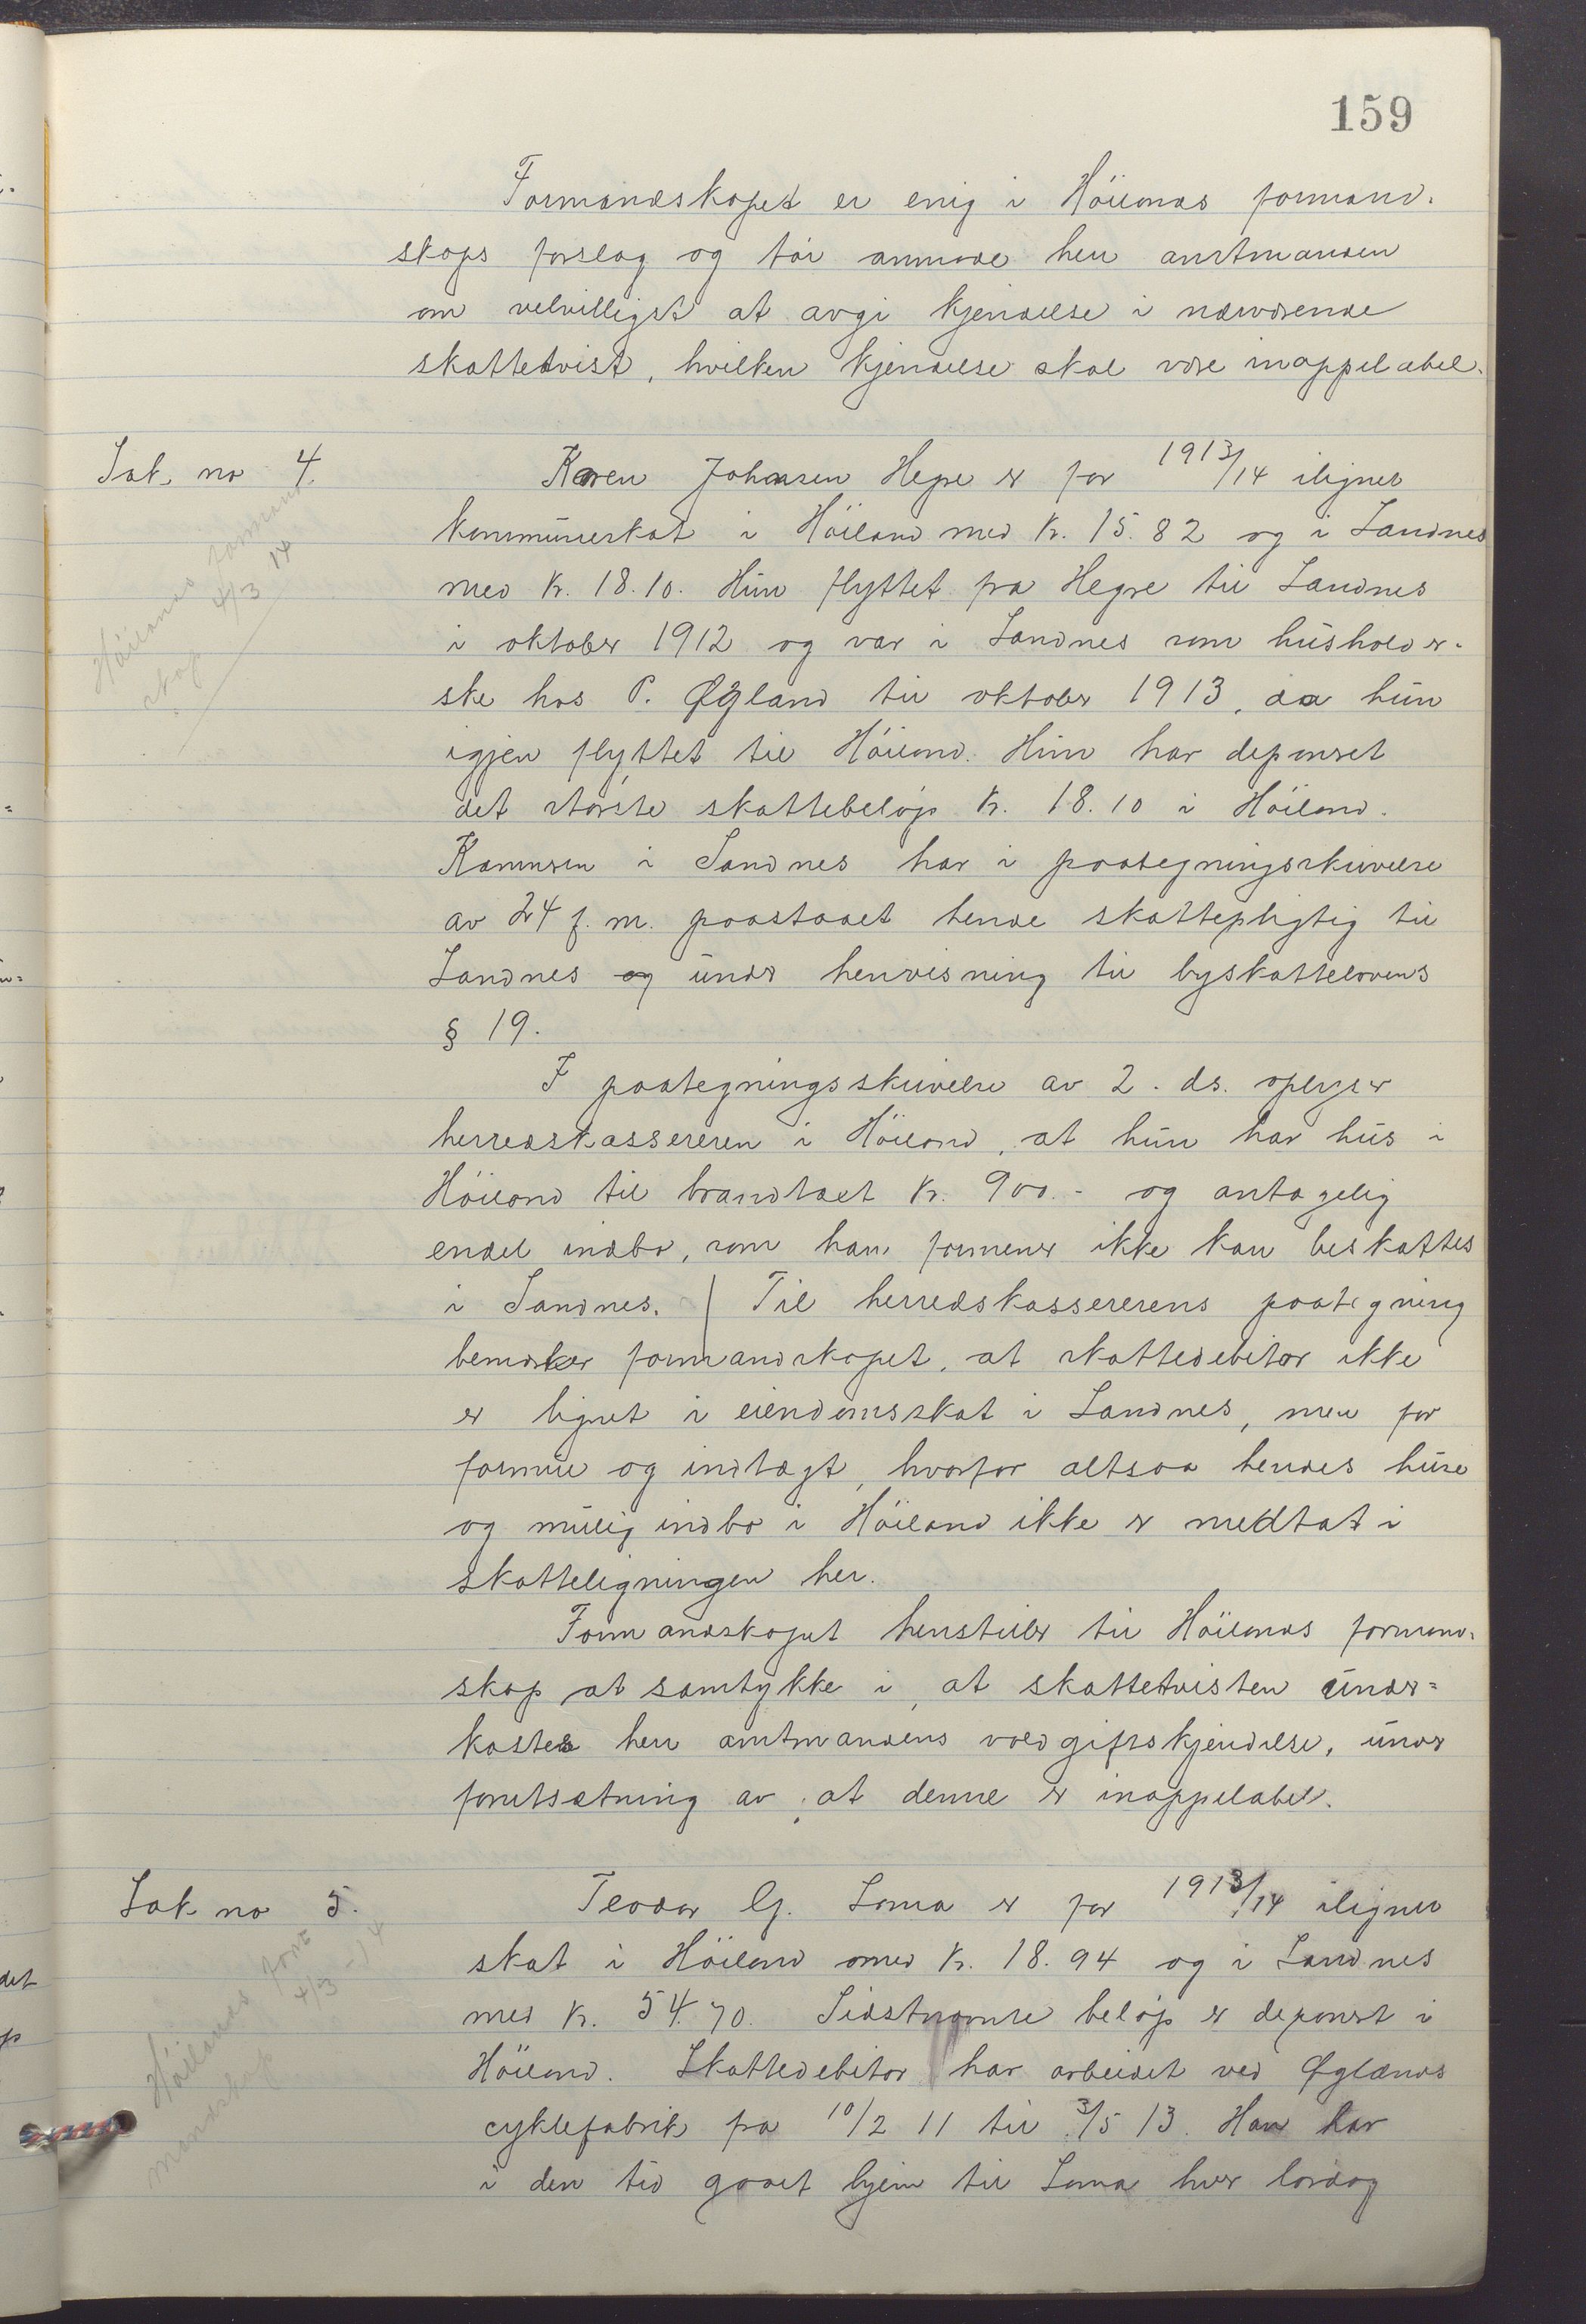 159
Formandskapet er enig i Höilands formand-
skaps forslag og tör anmode herr amtmanden
om velvilligst at avgi kjendelse i nærværende
skattetvist, hvilken kjendelse skal være inappelabel.
Sak no 4.
Höilands formand
skap 4/3 14
Karen Johansen Hegre er for 1913/14 ilignet
kommuneskat i Höiland med kr. 15.82 og i Sandnes
med kr. 18.10. Hun flyttet fra Hegre til Sandnes
i oktober 1912 og var i Sandnes som husholder-
ske hos P. Øgland til oktober 1913, da hun
igjen flyttet til Höiland. Hun har deponeret
det største skattebeløp kr. 18.10 i Höiland.
Kæmneren i Sandnes har i paategningsskrivelse
av 24 f. m. paastaaet hende skattepligtig til
Sandnes og under henvisning til byskattelovens
§ 19.
I paategningsskrivelse av 2. ds. oplyser
herredskassereren i Höiland, at hun har hus i
Höiland til brandtakt kr. 900.- og antagelig
endel indbo, som han formener ikke kan beskattes
i Sandnes. | Til herredskassererens paategning
bemerker formandskapet, at skattedebitor ikke
er lignet i eiendomsskat i Sandnes, men for
formue og indtægt, hvorfor altsaa hendes huse
og mulig indbo i Höiland ikke er medtat i
skatteligningen her.
Formandskapet henstiller til Höilands formand-
skap at samtykke i, at skattetvisten under=
kastes herr amtmandens voldgiftskjendelse, under
forutsætning av, at denne er inappelabel.
Sak no 5.
Höilands for=
mandskap 4/3-14
Teodor G. Soma er for 1913/14 ilignet
skat i Höiland med kr. 18.94 og i Sandnes
med kr. 54.70. Sidstnævnte beløp er deponert i
Höiland. Skattedebitor har arbeidet ved Øglænds
cyklefabrik fra 10/2 11 til 3/5 13. Han har
i den tid gaaet hjem til Soma hver lørdag